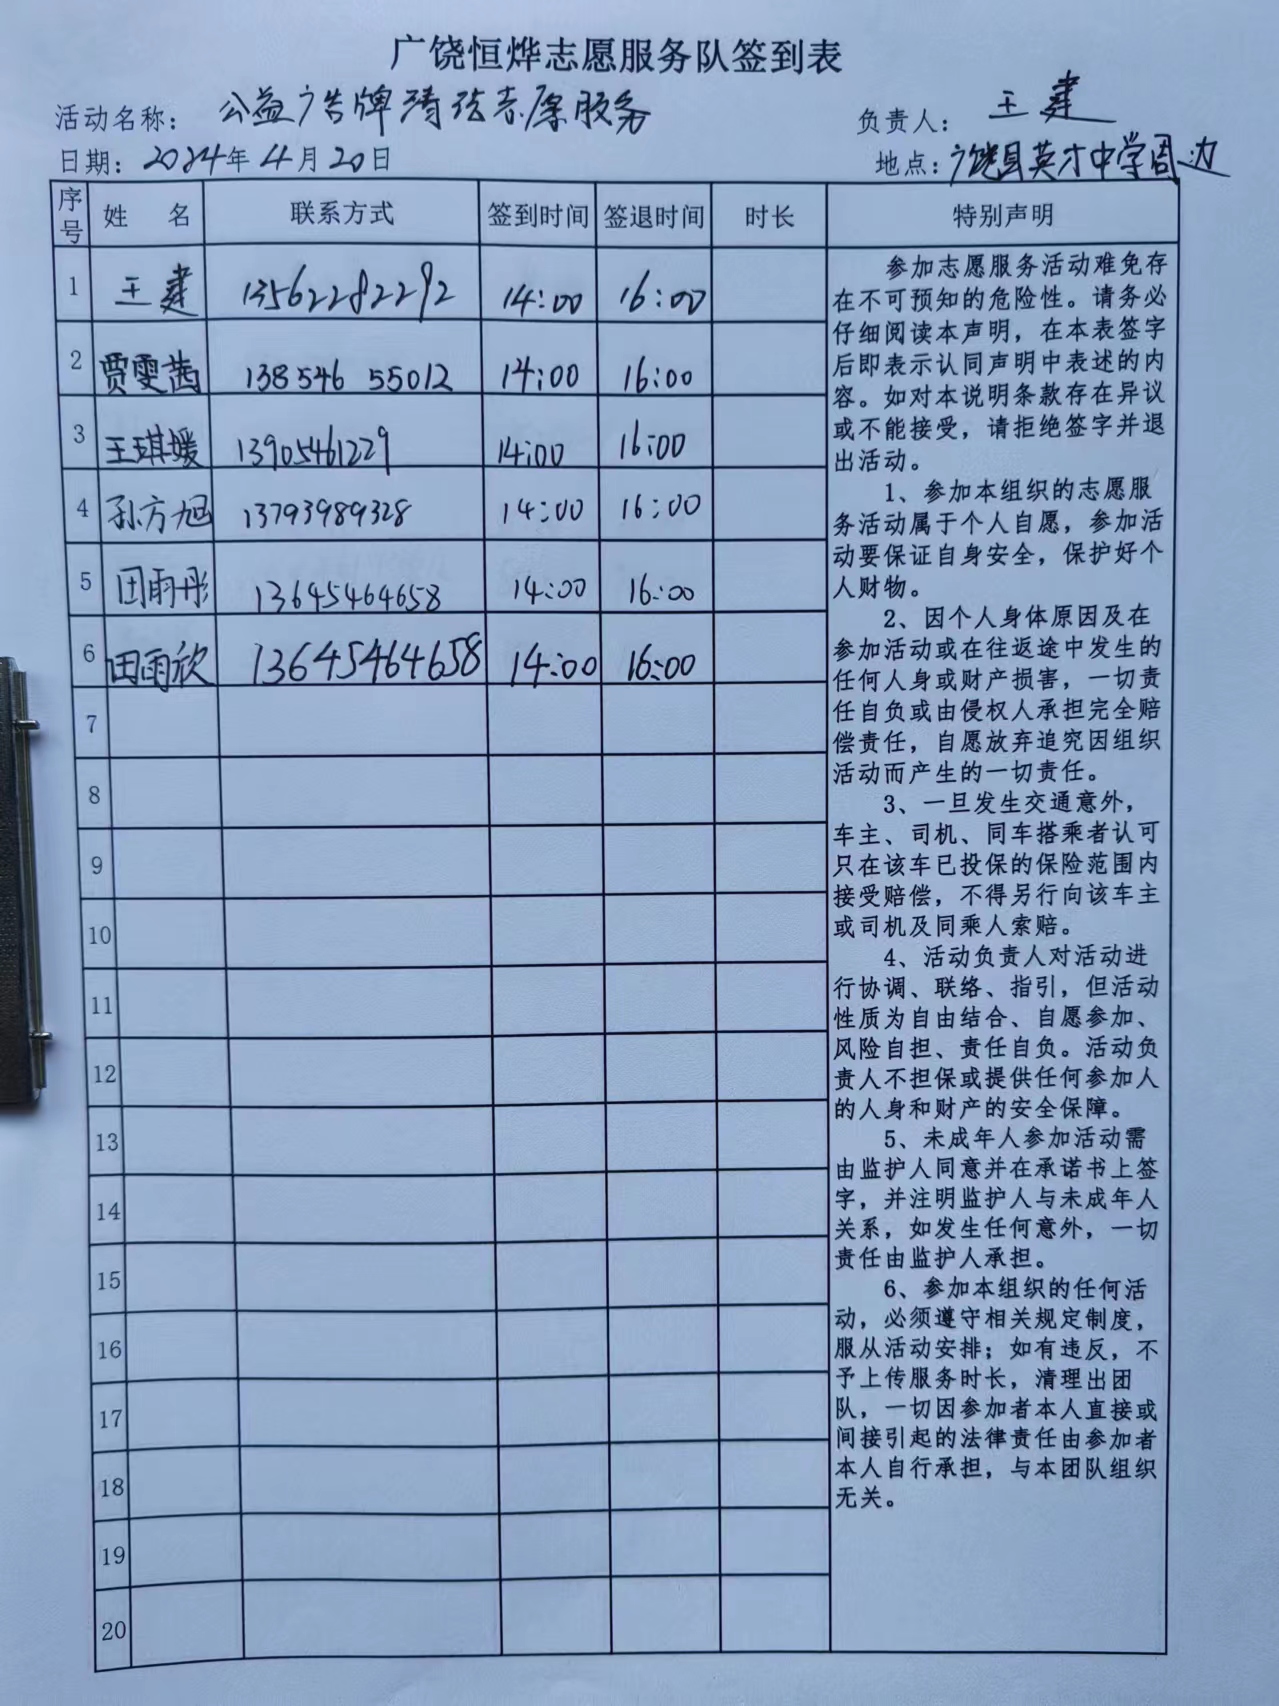 广饶恒烨志愿服务队签到表
活动名称： 公益广告牌清洁志愿服务 负责人： 王建
日期：2024年4月20日 地点：广饶县英才中学周边
序号 姓 名 联系方式 签到时间 签退时间 时长 特别声明
1 王建 13562282292 14:00 16:00
2 贾雯茜 138546 55012 14:00 16:00
3 王琪媛 13905461229 14:00 16:00
4 孙方旭 13793989328 14:00 16:00
5 田雨彤 13645464658 14:00 16:00
6 田雨欣 13645464658 14:00 16:00
7
8
9
10
11
12
13
14
15
16
17
18
19
20
参加志愿服务活动难免存
在不可预知的危险性。请务必
仔细阅读本声明，在本表签字
后即表示认同声明中表述的内
容。如对本说明条款存在异议
或不能接受，请拒绝签字并退
出活动。
1、参加本组织的志愿服
务活动属于个人自愿，参加活
动要保证自身安全，保护好个
人财物。
2、因个人身体原因及在
参加活动或在往返途中发生的
任何人身或财产损害，一切责
任自负或由侵权人承担完全赔
偿责任，自愿放弃追究因组织
活动而产生的一切责任。
3、一旦发生交通意外，
车主、司机、同车搭乘者认可
只在该车已投保的保险范围内
接受赔偿，不得另行向该车主
或司机及同乘人索赔。
4、活动负责人对活动进
行协调、联络、指引，但活动
性质为自由结合、自愿参加、
风险自担、责任自负。活动负
责人不担保或提供任何参加人
的人身和财产的安全保障。
5、未成年人参加活动需
由监护人同意并在承诺书上签
字，并注明监护人与未成年人
关系，如发生任何意外，一切
责任由监护人承担。
6、参加本组织的任何活
动，必须遵守相关规定制度，
服从活动安排；如有违反，不
予上传服务时长，清理出团
队，一切因参加者本人直接或
间接引起的法律责任由参加者
本人自行承担，与本团队组织
无关。